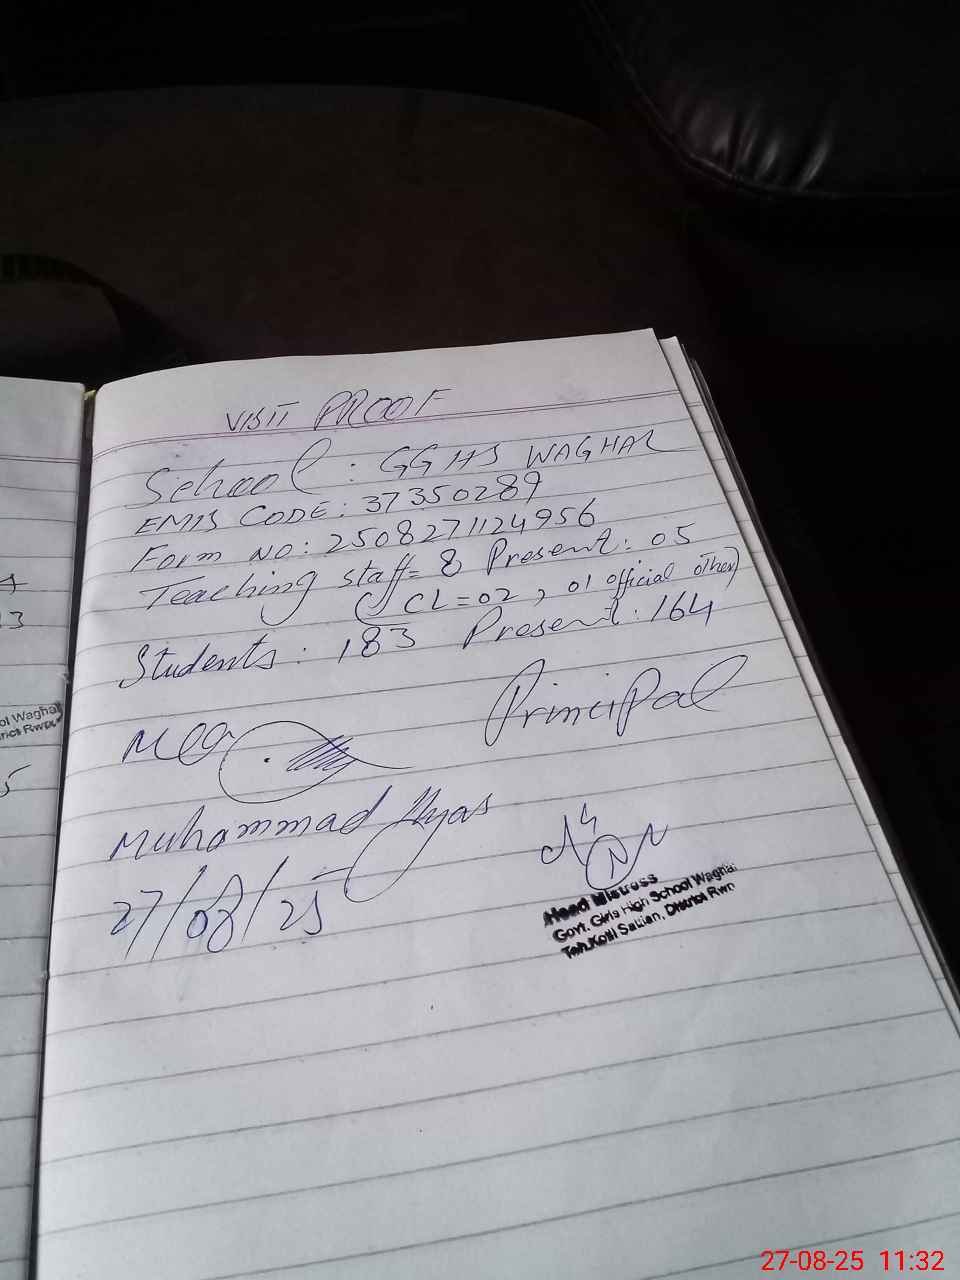 VISIT PROOF
School : GGHS WAGHAR
EMIS CODE: 37350289
Form NO: 2508271124956
Teaching staff= 8 Present: 05
(CL=02, 01 official other)
Students: 183 Present: 164
Principal
Muhammad Ilyas
27/08/25
Head Mistress
Govt. Girls High School Waghar
Teh.Kotli Sattian, District Rwp
ol Waghar
rict Rwp
13
5
27-08-25 11:32